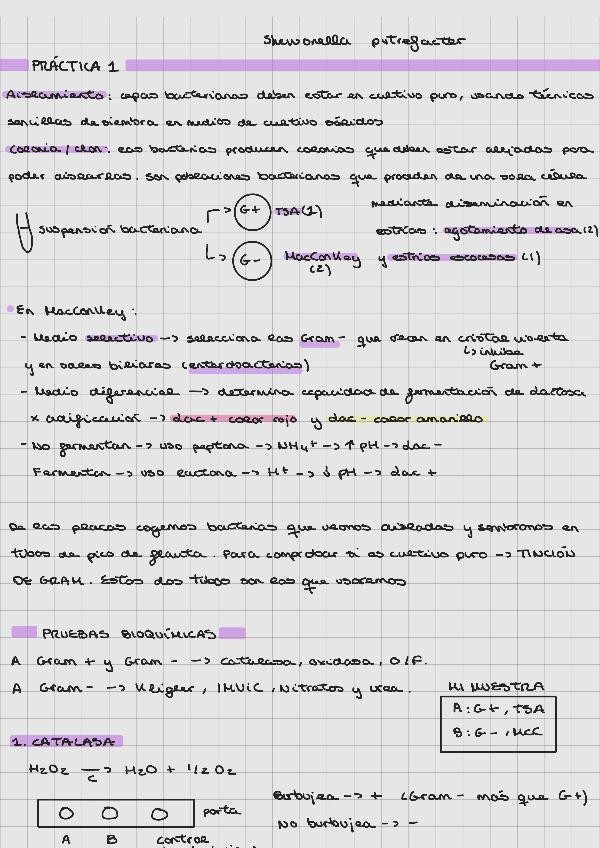 Shewonella putrefacter
PRÁCTICA 1
Aislamiento: cepas bacterianas deben estar en cultivo puro, usando técnicas
sencillas de siembra en medios de cultivo sólidos
Colonia / clon: las bacterias producen colonias que deben estar alejadas para
poder aislarlas. Son poblaciones bacterianas que proceden de una sola célula
suspensión bacteriana
G+ TSA (1)
G- MacConkey (2)
mediante diseminación en
estrías: agotamiento de asa (2)
y estrías escocesas (1)
En MacConkey:
- Medio selectivo -> selecciona las Gram - que crecen en cristal violeta
↳ inhibe Gram +
y en sales biliares (enterobacterias)
- Medio diferencial -> determina capacidad de fermentación de lactosa
x acidificación -> lac + color rojo y lac - color amarillo
- No fermentan -> uso peptona -> NH4+ -> ↑ pH -> lac -
Fermentan -> uso lactona -> H+ -> ↓ pH -> lac +
De las placas cogemos bacterias que veamos aisladas y sembramos en
tubos de pico de flauta. Para comprobar si es cultivo puro -> TINCIÓN
DE GRAM. Estos dos tubos son los que usaremos
PRUEBAS BIOQUÍMICAS
A Gram + y Gram - -> catalasa, oxidasa, O/F.
A Gram - -> Kligler, IMViC, Nitratos y urea.
MI MUESTRA
A: G+, TSA
B: G-, MCC
1. CATALASA
H2O2 —> H2O + 1/2 O2
C
Burbujea -> + (Gram - más que G+)
No burbujea -> -
porta
A B control